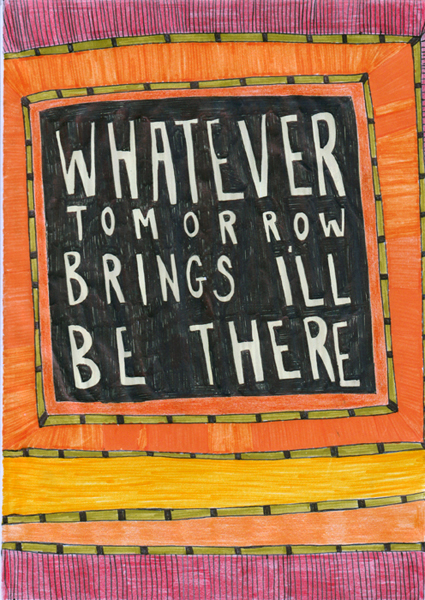 WHATEVER
TOMORROW
BRINGS I'LL
BE THERE